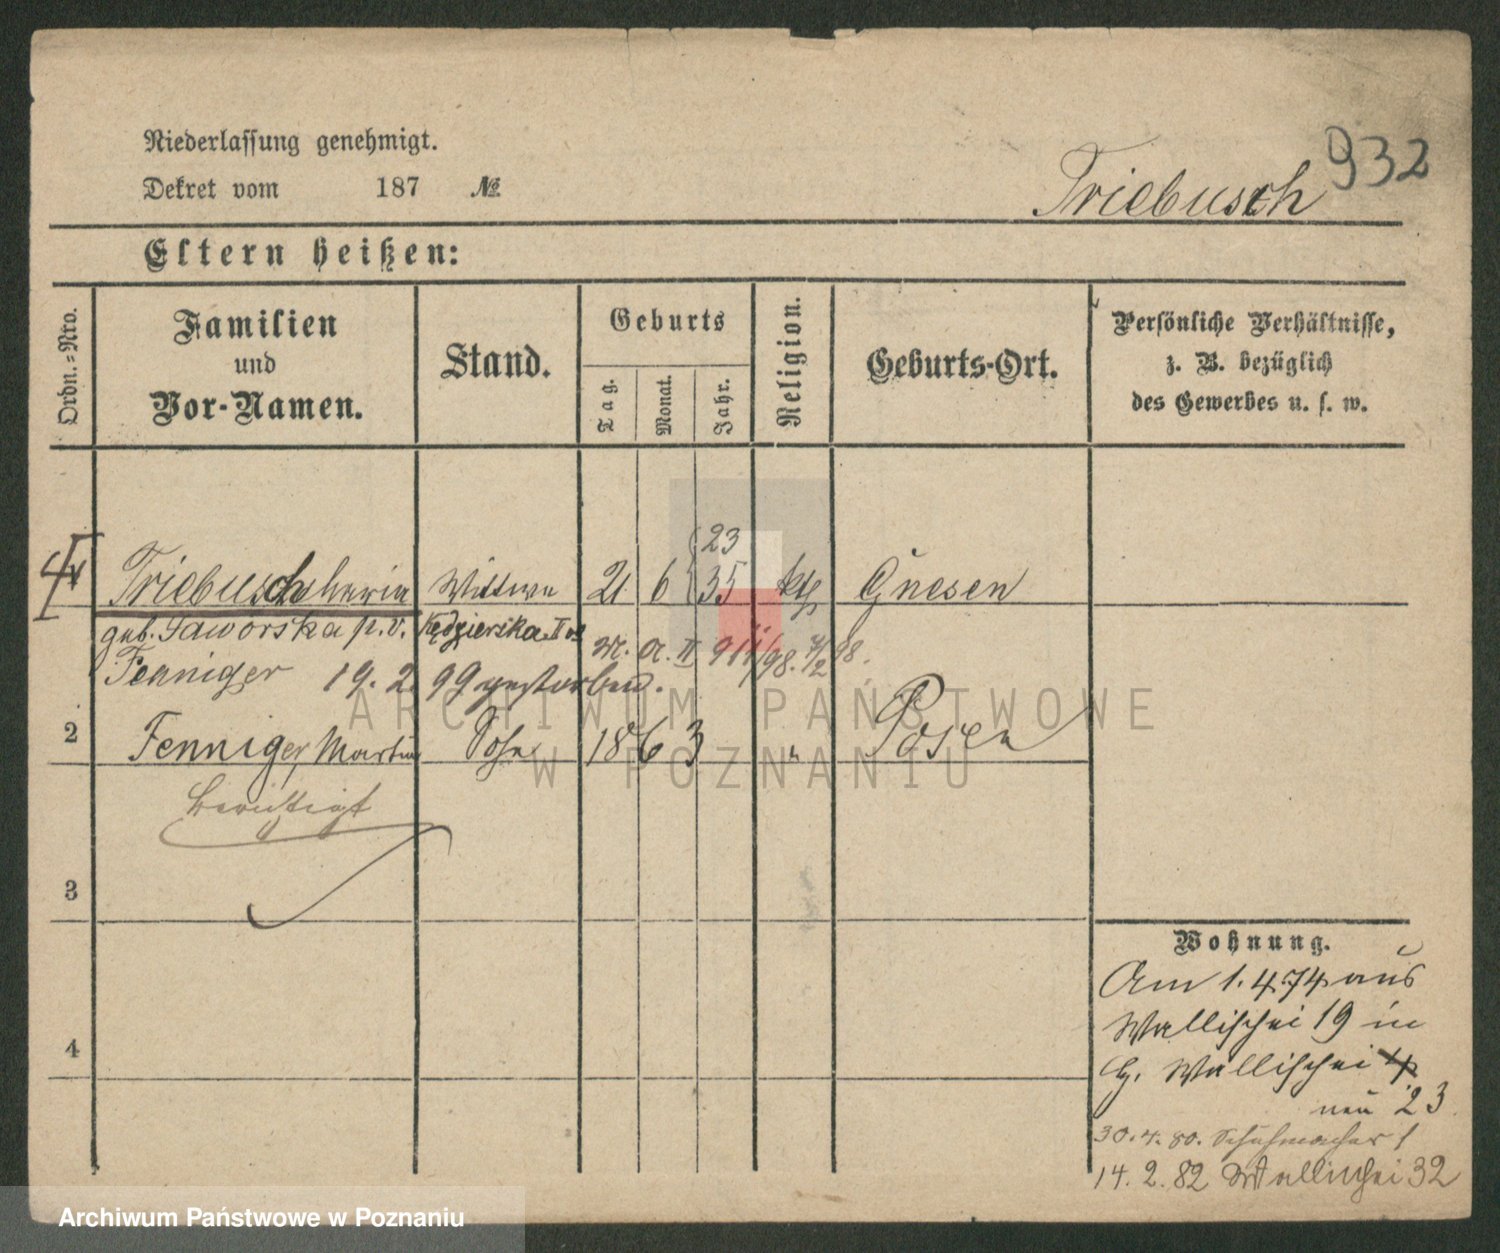 932
Niederlassung genehmigt.
Dekret vom 187 №
Triebusch
Eltern heißen:
Ordn.=Nro.
Familien
und
Vor-Namen.
Stand.
Geburts
Tag.
Monat.
Jahr.
Religion.
Geburts-Ort.
Persönliche Verhältnisse,
z. B. bezüglich
des Gewerbes u. s. w.
23
Triebusch Wittwe 21 6 35 kth Gnesen
geb. Jaworska p. v. Kędzierska II
Fenniger 19. 2. 99 gestorben.
2 Fenniger, Martin Sohn 18 6 3 " Posen
berichtigt
3
4
Wohnung.
Am 1. 4 74 aus
Wallischei 19 in
Wallischei 4
neu 23
30. 4. 80. Schuhmacher 1
14. 2. 82 Wallischei 32
ARCHIWUM PAŃSTWOWE
W POZNANIU
Archiwum Państwowe w Poznaniu